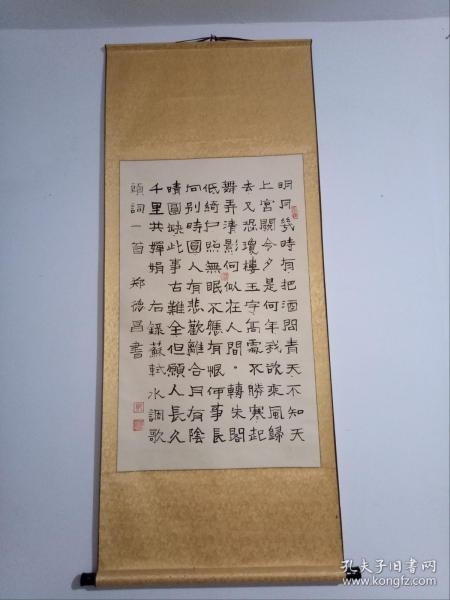 明月幾時有把酒問青天不知天
上宮闕今夕是何年我欲乘風歸
去又恐瓊樓玉宇高處不勝寒起
舞弄清影何似在人間。轉朱閣
低綺户照無眠不應有恨何事長
向别時圓人有悲歡離合月有陰
晴圓缺此事古難全但願人長久
千里共嬋娟 右錄蘇軾水調歌
頭詞一首 郑德昌書
孔夫子旧书网
www.kongfz.com